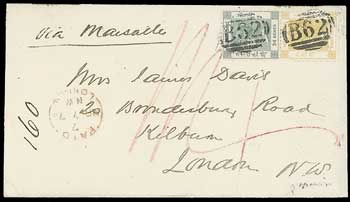 via Marseille
B62 B62
Mrs James Davis
2 Brondesbury Road
Kilburn
London
N.W.
160
PAID